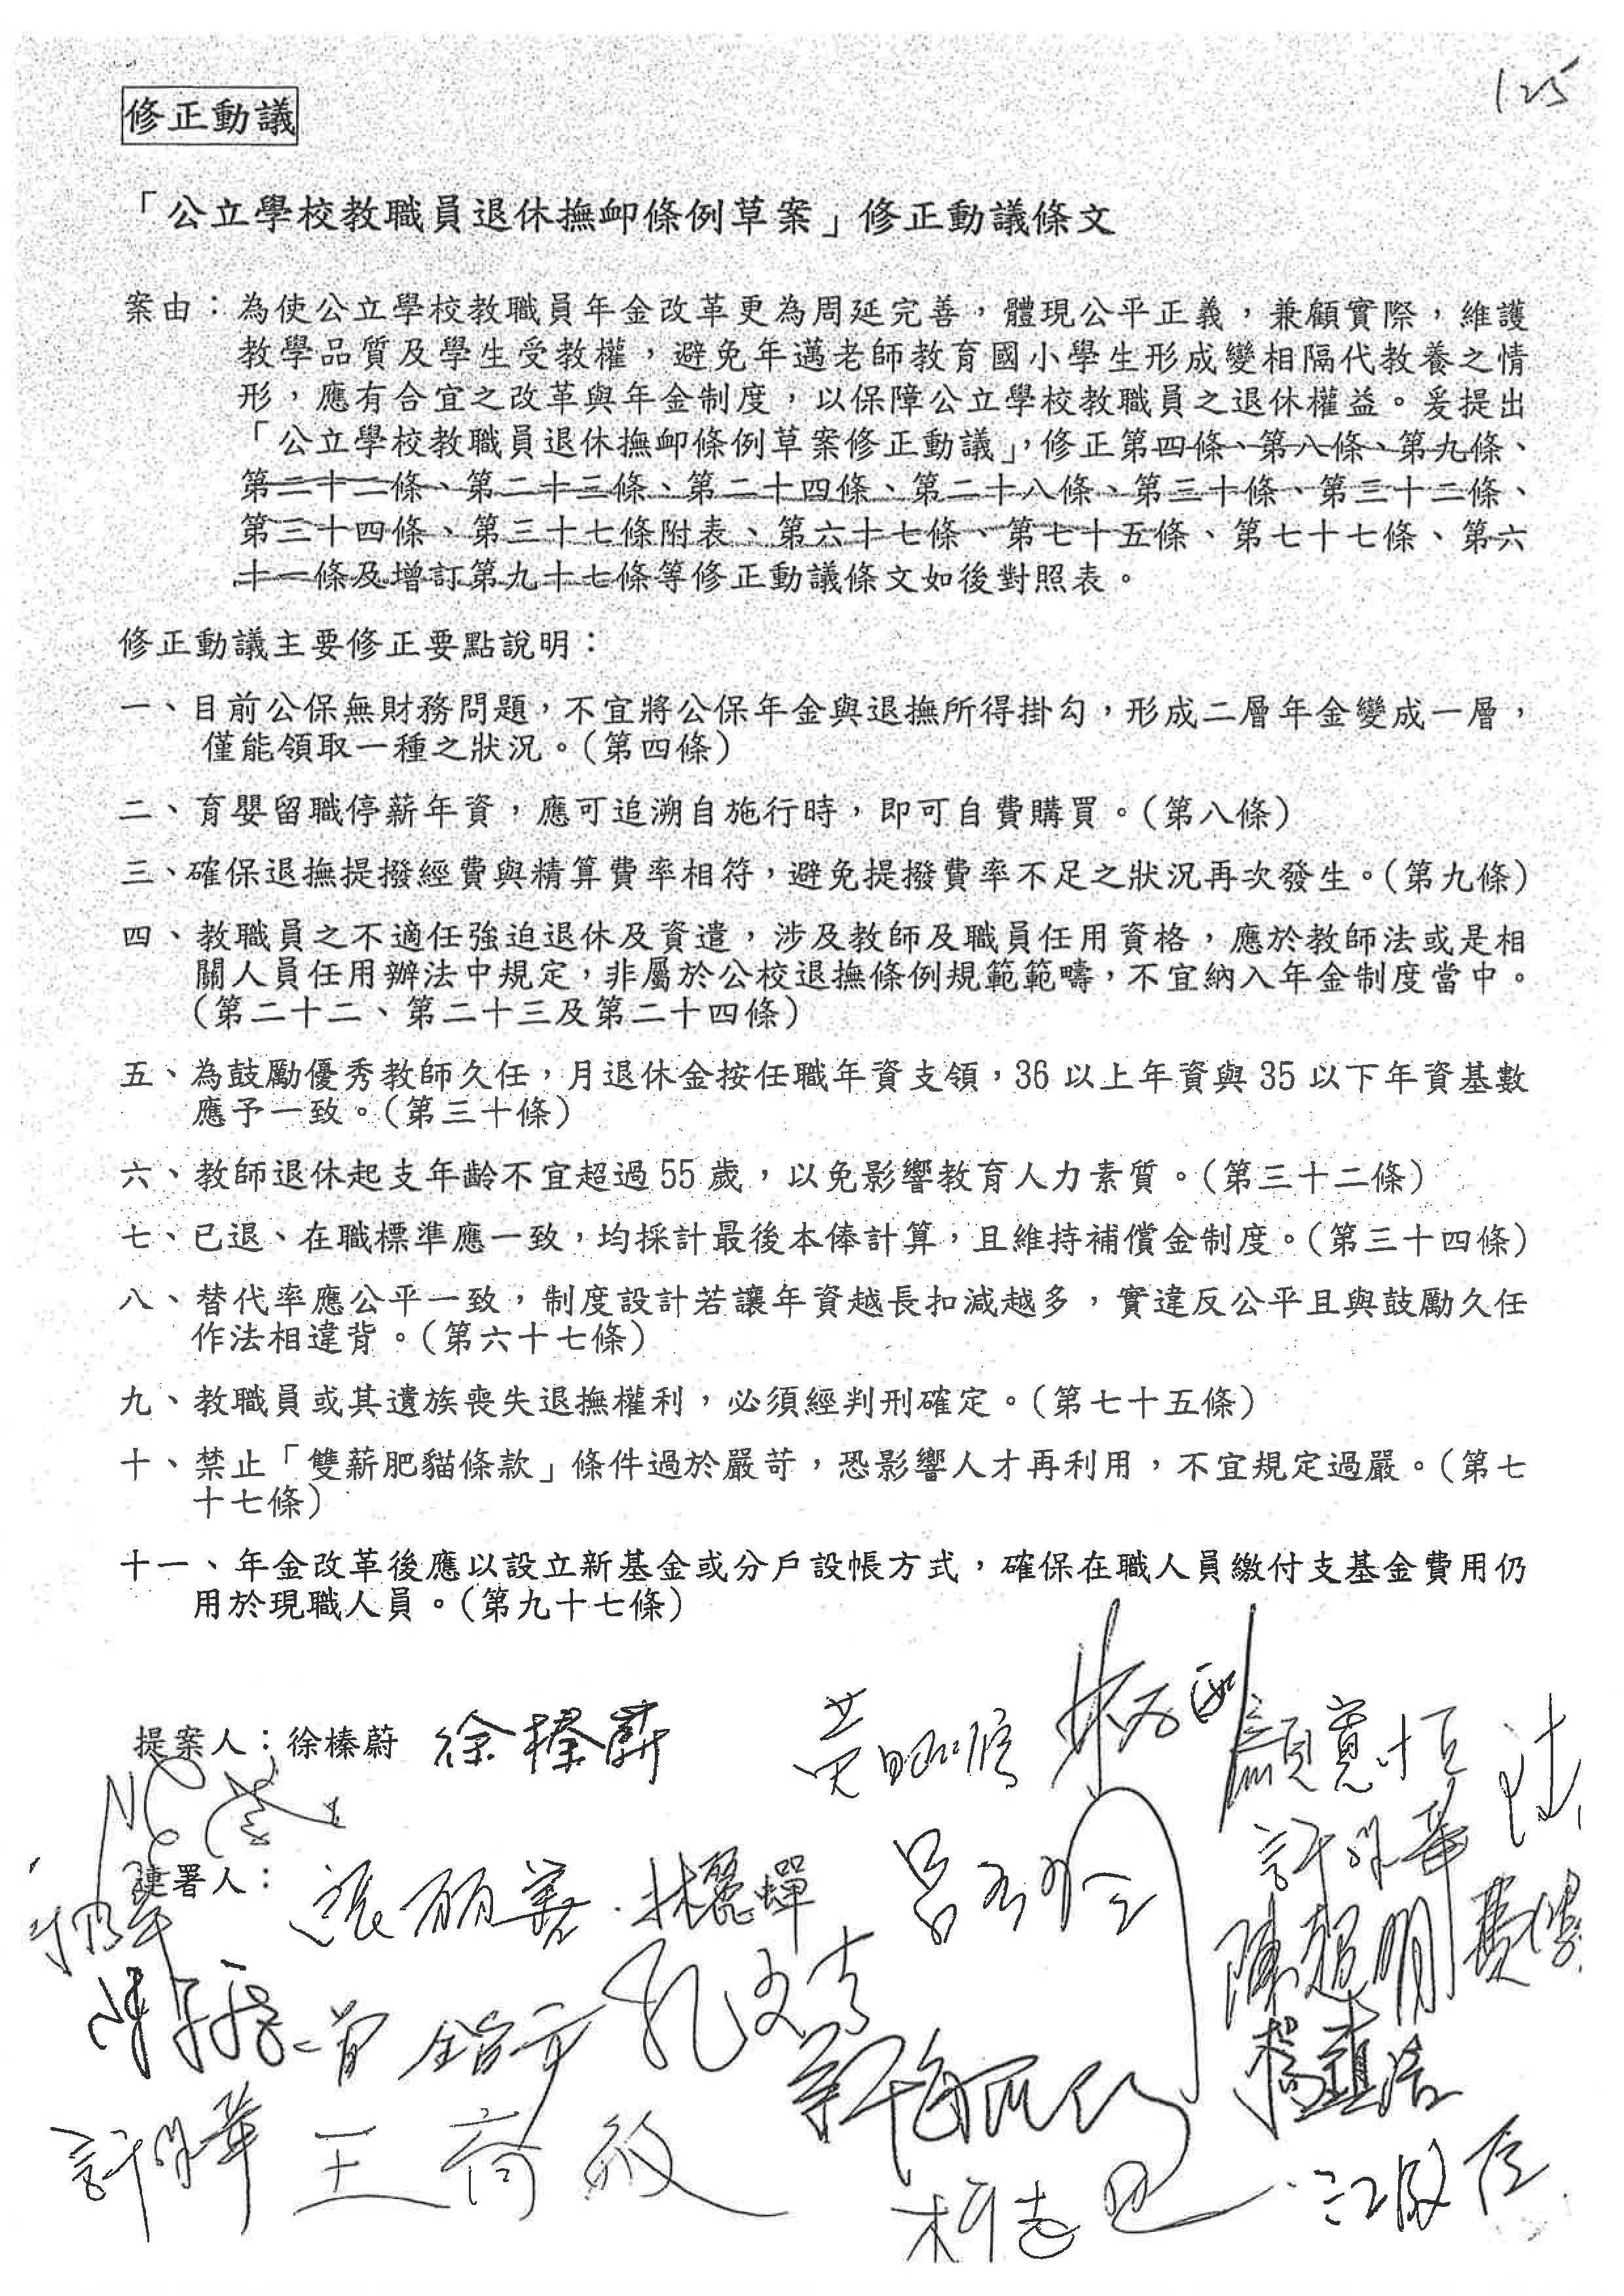 125
修正動議
「公立學校教職員退休撫卹條例草案」修正動議條文
案由：為使公立學校教職員年金改革更為周延完善，體現公平正義，兼顧實際，維護
教學品質及學生受教權，避免年邁老師教育國小學生形成變相隔代教養之情
形，應有合宜之改革與年金制度，以保障公立學校教職員之退休權益。爰提出
「公立學校教職員退休撫卹條例草案修正動議」，修正第四條、第八條、第九條、
第二十二條、第二十三條、第二十四條、第二十八條、第三十條、第三十二條、
第三十四條、第三十七條附表、第六十七條、第七十五條、第七十七條、第六
十一條及增訂第九十七條等修正動議條文如後對照表。
修正動議主要修正要點說明：
一、目前公保無財務問題，不宜將公保年金與退撫所得掛勾，形成二層年金變成一層，
僅能領取一種之狀況。（第四條）
二、育嬰留職停薪年資，應可追溯自施行時，即可自費購買。（第八條）
三、確保退撫提撥經費與精算費率相符，避免提撥費率不足之狀況再次發生。（第九條）
四、教職員之不適任強迫退休及資遣，涉及教師及職員任用資格，應於教師法或是相
關人員任用辦法中規定，非屬於公校退撫條例規範範疇，不宜納入年金制度當中。
（第二十二、第二十三及第二十四條）
五、為鼓勵優秀教師久任，月退休金按任職年資支領，36以上年資與35以下年資基數
應予一致。（第三十條）
六、教師退休起支年齡不宜超過55歲，以免影響教育人力素質。（第三十二條）
七、已退、在職標準應一致，均採計最後本俸計算，且維持補償金制度。（第三十四條）
八、替代率應公平一致，制度設計若讓年資越長扣減越多，實違反公平且與鼓勵久任
作法相違背。（第六十七條）
九、教職員或其遺族喪失退撫權利，必須經判刑確定。（第七十五條）
十、禁止「雙薪肥貓條款」條件過於嚴苛，恐影響人才再利用，不宜規定過嚴。（第七
十七條）
十一、年金改革後應以設立新基金或分戶設帳方式，確保在職人員繳付支基金費用仍
用於現職人員。（第九十七條）
提案人：徐榛蔚 徐榛蔚 黃昭順 顏寬恒
連署人：張麗善 林麗蟬 呂玉玲 許淑華
陳超明
曾銘宗 孔文吉
楊鎮浯
許淑華 王育敏
柯志恩 江啟臣